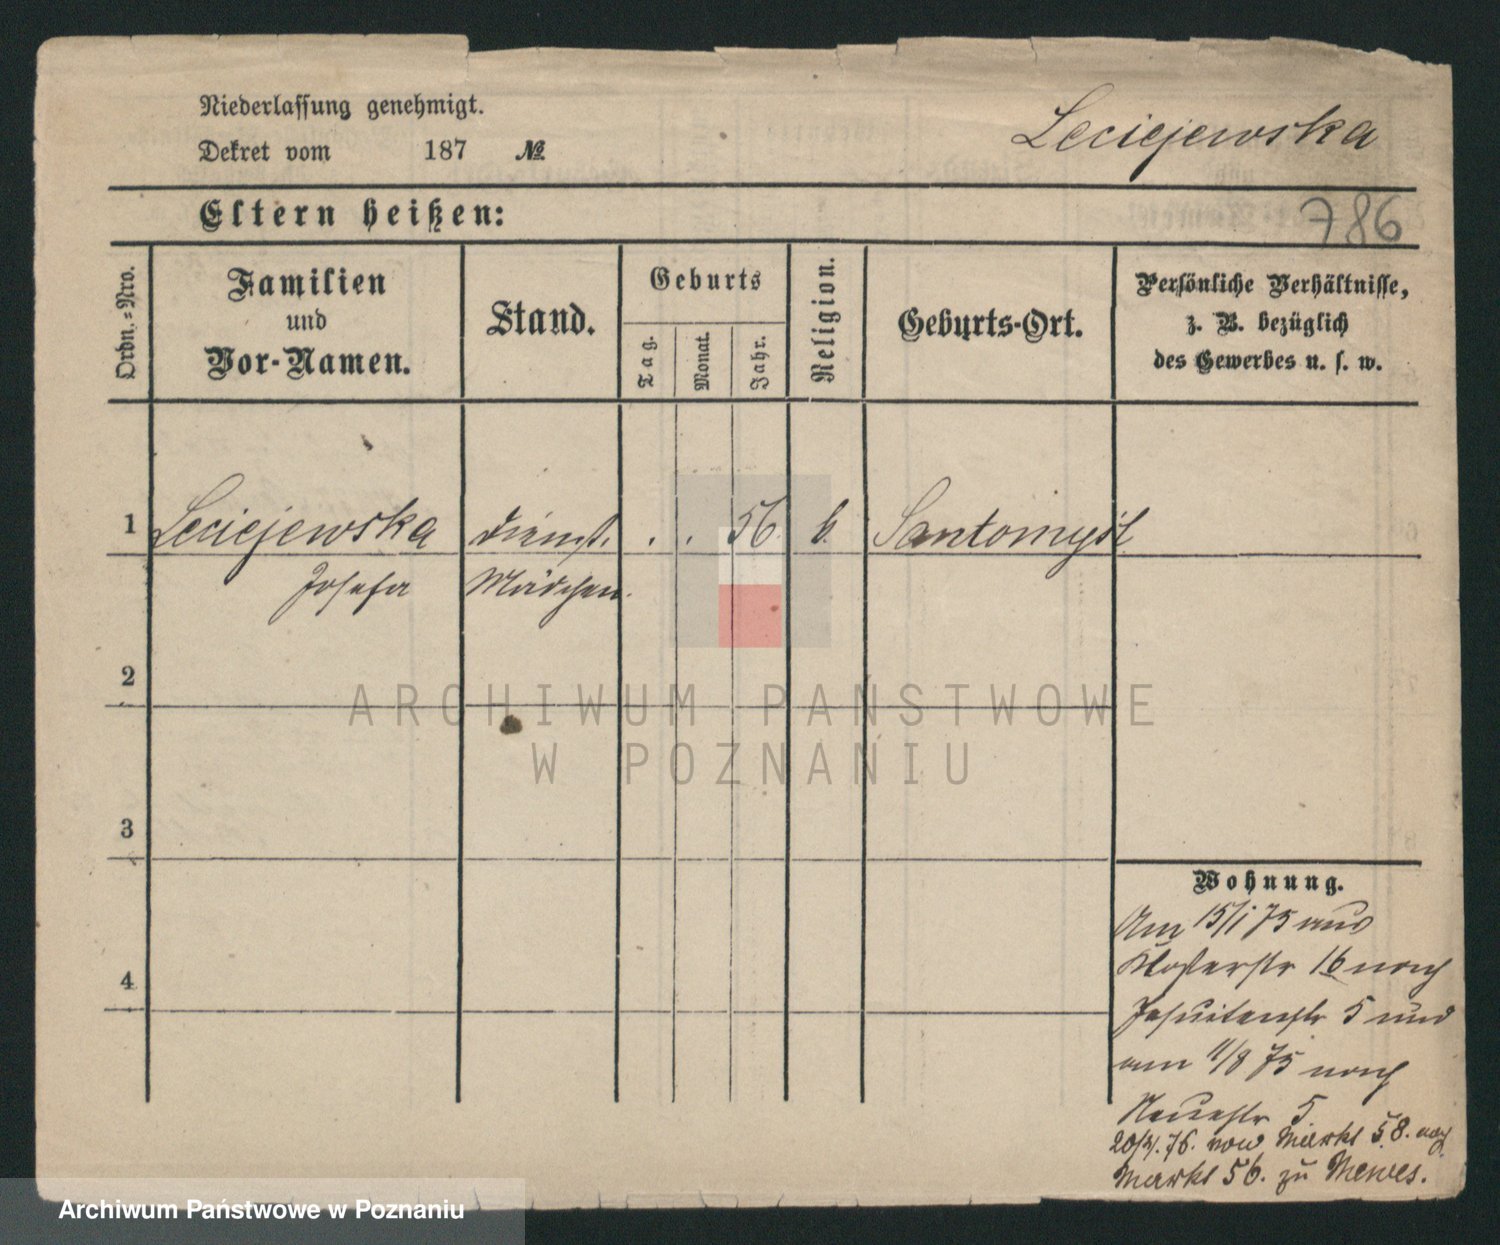 Niederlassung genehmigt.
Leciejewska
Dekret vom 187 №
Eltern heißen:
786
Ordn.-Nro.
Familien
und
Vor-Namen.
Stand.
Geburts
Tag.
Monat.
Jahr.
Religion.
Geburts-Ort.
Persönliche Verhältnisse,
z. B. bezüglich
des Gewerbes u. s. w.
1 Leciejewska Dienst. . . 56. k. Santomyśl
Josefa Mädchen.
2
ARCHIWUM PAŃSTWOWE
W POZNANIU
3
Wohnung.
Am 15/1 75 aus
Klosterstr 16 nach
4
Jesuitenstr 5 und
am 11/8 75 nach
Neuestr 5
76. von Markt 58. nach
Markt 56. zu Mewes.
Archiwum Państwowe w Poznaniu